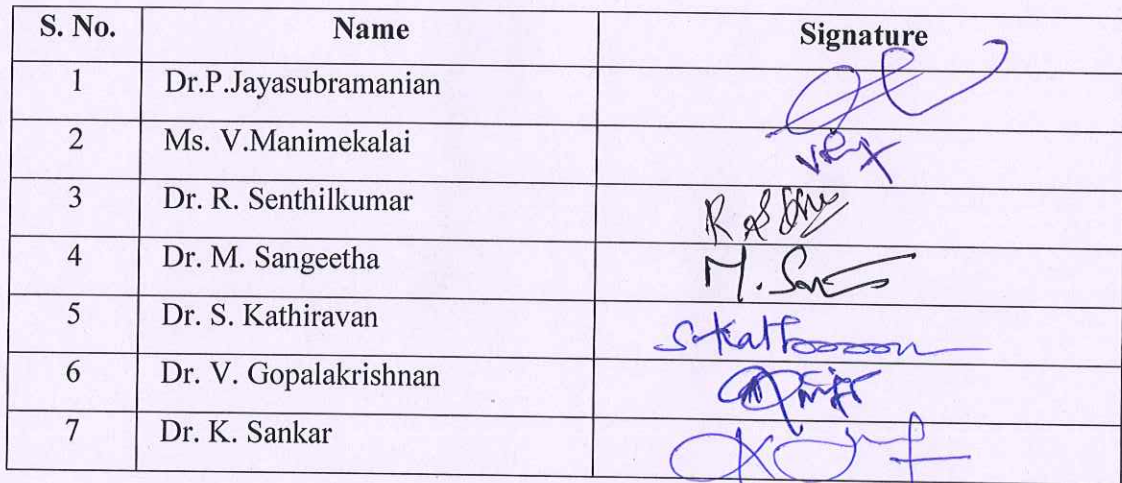 S. No. Name Signature
1 Dr.P.Jayasubramanian
2 Ms. V.Manimekalai
3 Dr. R. Senthilkumar
4 Dr. M. Sangeetha M. San
5 Dr. S. Kathiravan
6 Dr. V. Gopalakrishnan
7 Dr. K. Sankar